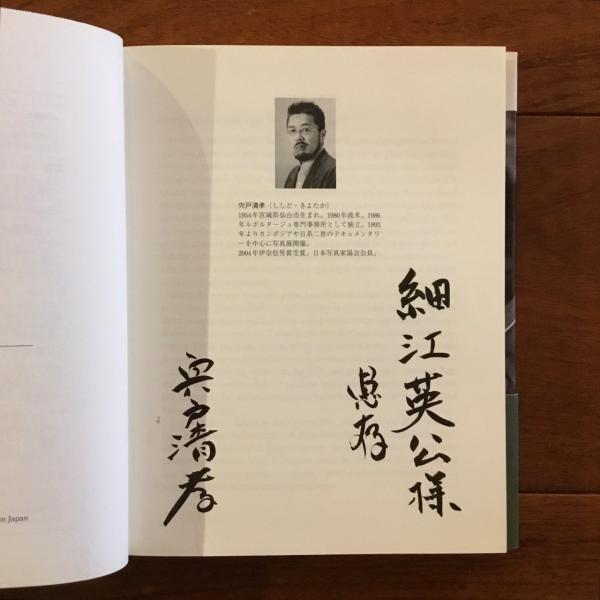 宍戸清孝（ししど・きよたか）
1954年宮城県仙台市生まれ。1980年渡米。1986
年ルポルタージュ専門事務所として独立。1993
年よりカンボジアや日系二世のドキュメンタリ
ーを中心に写真展開催。
2004年伊奈信男賞受賞。日本写真家協会会員。
細江英公様
恵存
宍戸清孝
in Japan